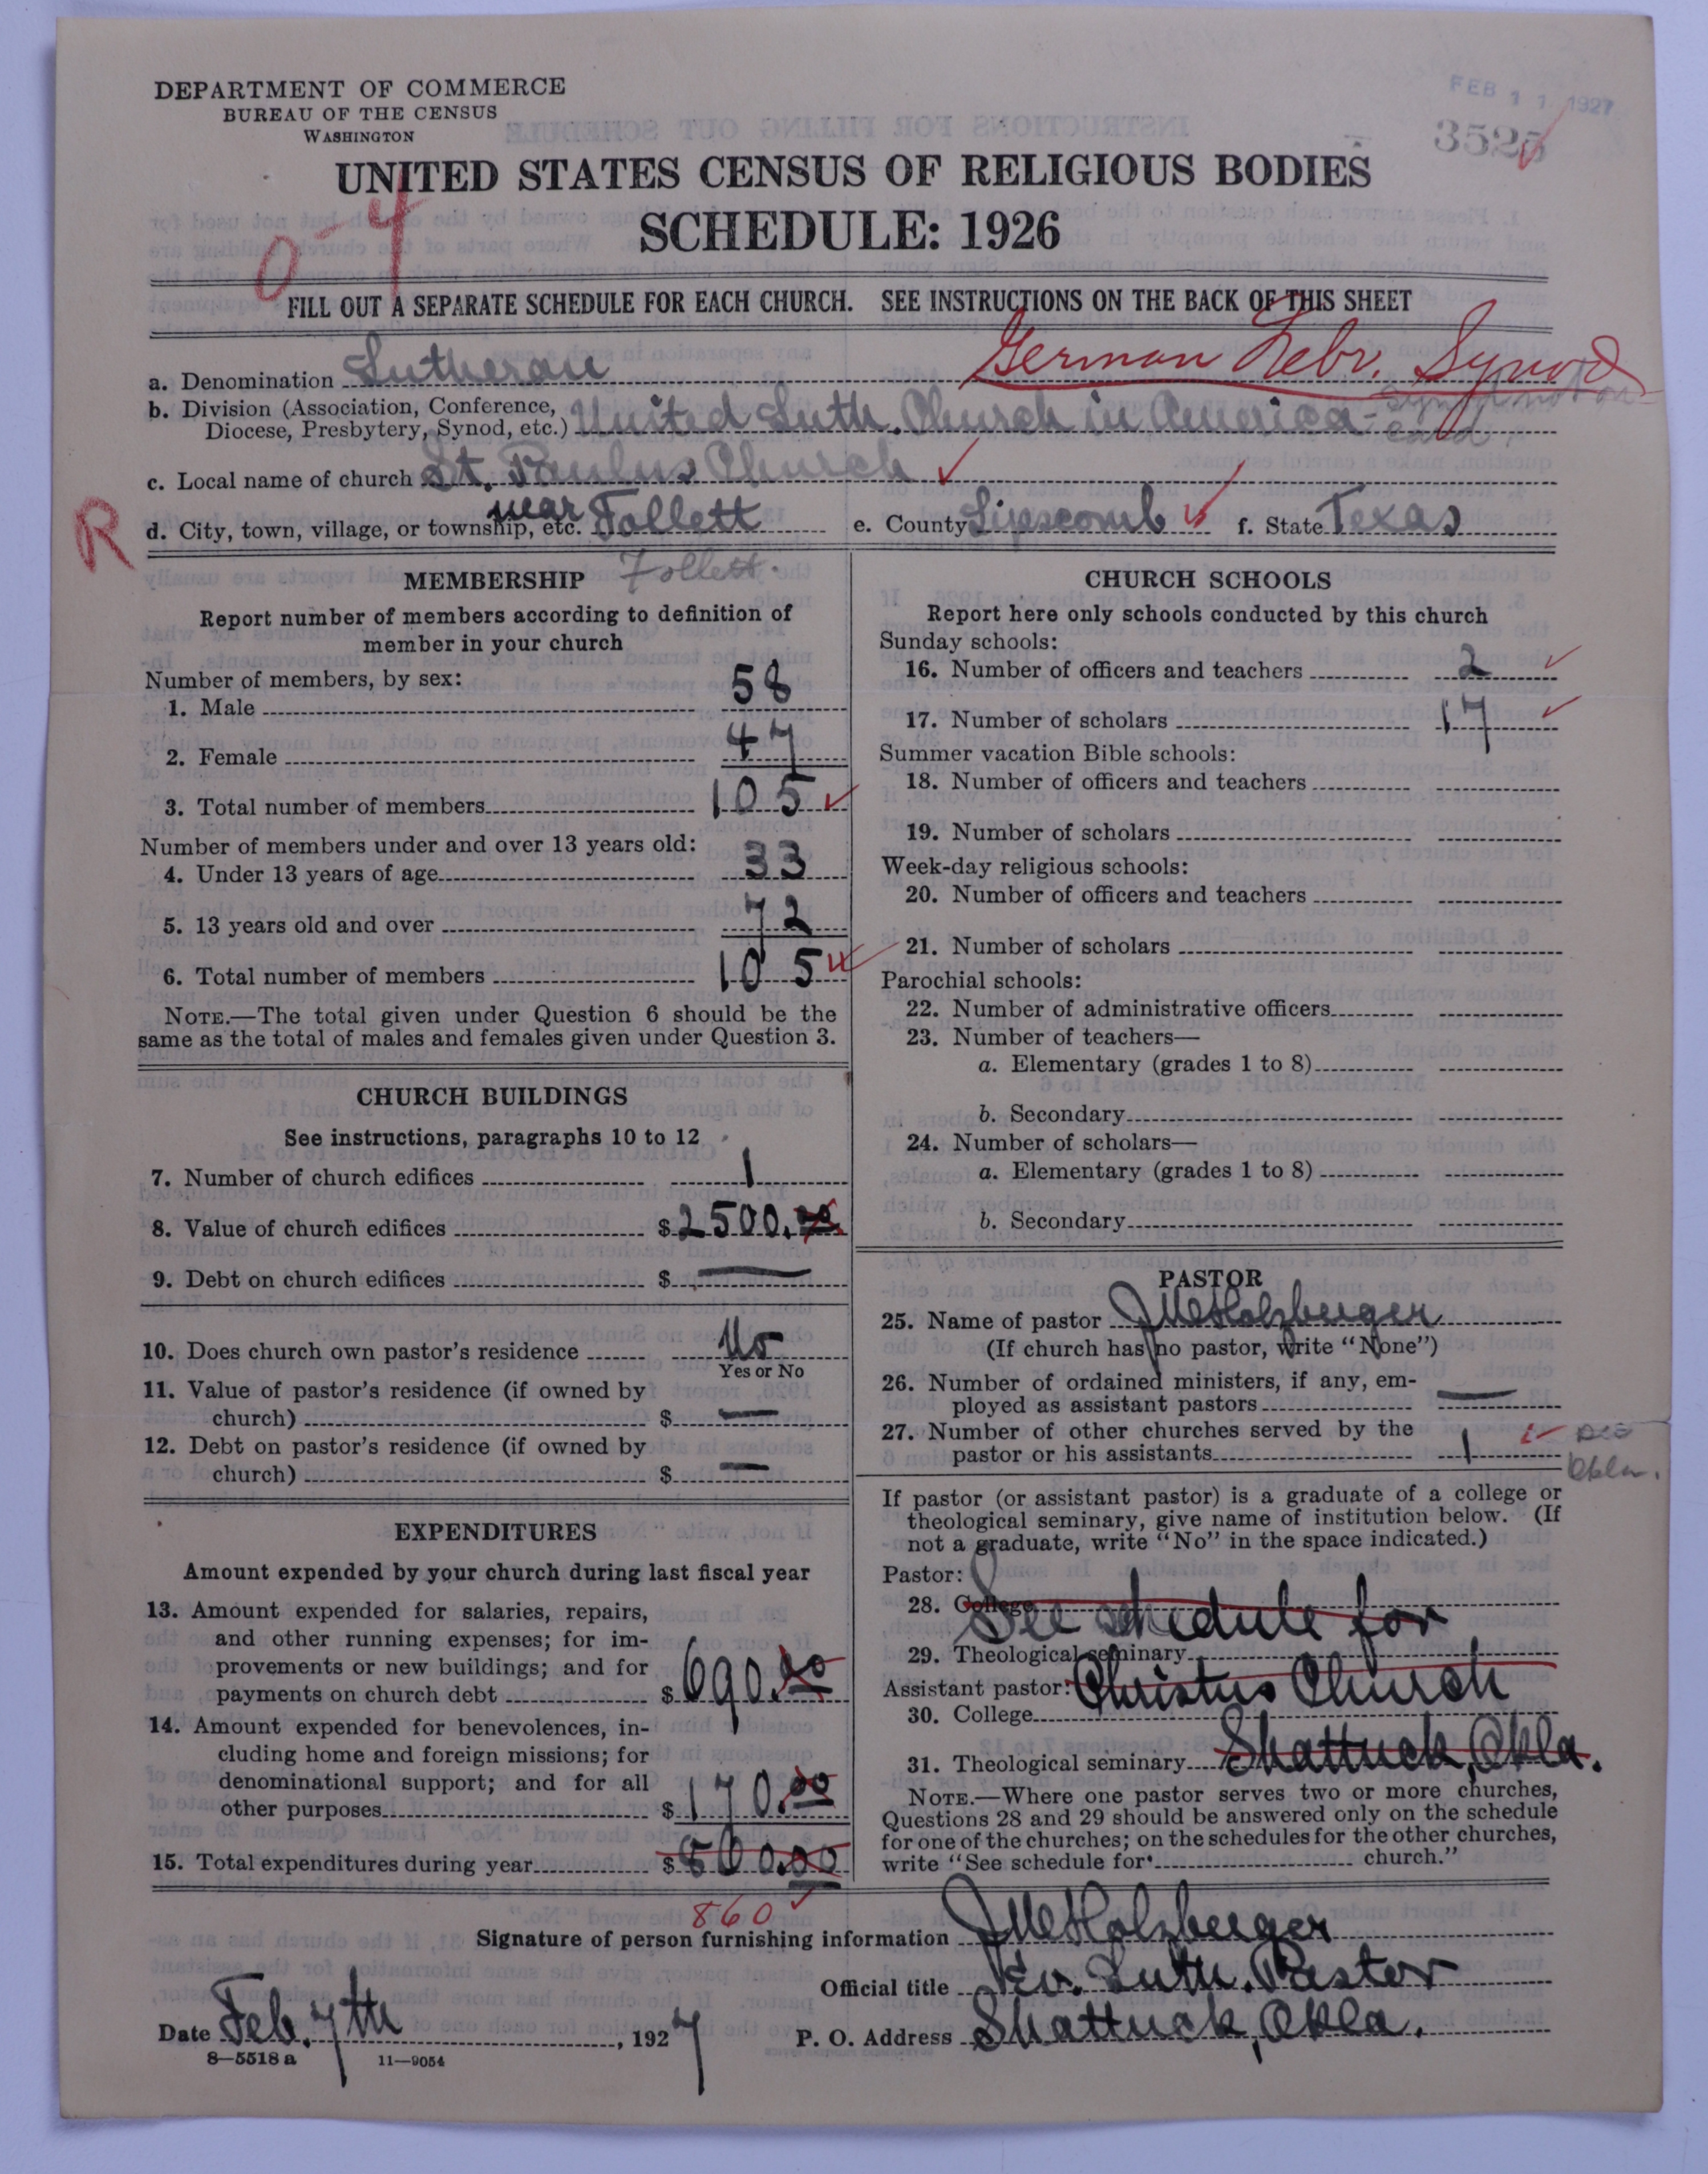 DEPARTMENT OF COMMERCE
BUREAU OF THE CENSUS
WASHINGTON
FEB 11 1927
3525
UNITED STATES CENSUS OF RELIGIOUS BODIES
SCHEDULE: 1926
0-4
FILL OUT A SEPARATE SCHEDULE FOR EACH CHURCH. SEE INSTRUCTIONS ON THE BACK OF THIS SHEET
German Nebr. Synod
a. Denomination Lutheran
b. Division (Association, Conference, Diocese, Presbytery, Synod, etc.) United Luth. Church in America - Synod not on card.
c. Local name of church St. Paulus Church
R
d. City, town, village, or township, etc. near Follett e. County Lipscomb f. State Texas
Follett.
MEMBERSHIP
Report number of members according to definition of
member in your church
Number of members, by sex:
1. Male 58
2. Female 47
3. Total number of members 105
Number of members under and over 13 years old:
4. Under 13 years of age 33
5. 13 years old and over 72
6. Total number of members 105
NOTE.—The total given under Question 6 should be the
same as the total of males and females given under Question 3.
CHURCH BUILDINGS
See instructions, paragraphs 10 to 12
7. Number of church edifices 1
8. Value of church edifices $2500.00
9. Debt on church edifices $ —
10. Does church own pastor's residence No
Yes or No
11. Value of pastor's residence (if owned by
church) $ —
12. Debt on pastor's residence (if owned by
church) $ —
EXPENDITURES
Amount expended by your church during last fiscal year
13. Amount expended for salaries, repairs,
and other running expenses; for im-
provements or new buildings; and for
payments on church debt $690.00
14. Amount expended for benevolences, in-
cluding home and foreign missions; for
denominational support; and for all
other purposes $170.00
15. Total expenditures during year $860.00
860
CHURCH SCHOOLS
Report here only schools conducted by this church
Sunday schools:
16. Number of officers and teachers 2
17. Number of scholars 17
Summer vacation Bible schools:
18. Number of officers and teachers
19. Number of scholars
Week-day religious schools:
20. Number of officers and teachers
21. Number of scholars
Parochial schools:
22. Number of administrative officers
23. Number of teachers—
a. Elementary (grades 1 to 8)
b. Secondary
24. Number of scholars—
a. Elementary (grades 1 to 8)
b. Secondary
PASTOR
25. Name of pastor Holzberger
(If church has no pastor, write "None")
26. Number of ordained ministers, if any, em-
ployed as assistant pastors —
27. Number of other churches served by the
pastor or his assistants 1
Okla.
If pastor (or assistant pastor) is a graduate of a college or
theological seminary, give name of institution below. (If
not a graduate, write "No" in the space indicated.)
Pastor:
28. College See schedule for
29. Theological seminary
Assistant pastor: Christus Church
30. College
31. Theological seminary Shattuck, Okla.
NOTE.—Where one pastor serves two or more churches,
Questions 28 and 29 should be answered only on the schedule
for one of the churches; on the schedules for the other churches,
write "See schedule for church."
Signature of person furnishing information Holzberger
Official title Ev. Luth. Pastor
Date Feb. 7th, 1927 P. O. Address Shattuck, Okla.
8—5518 a 11—9054